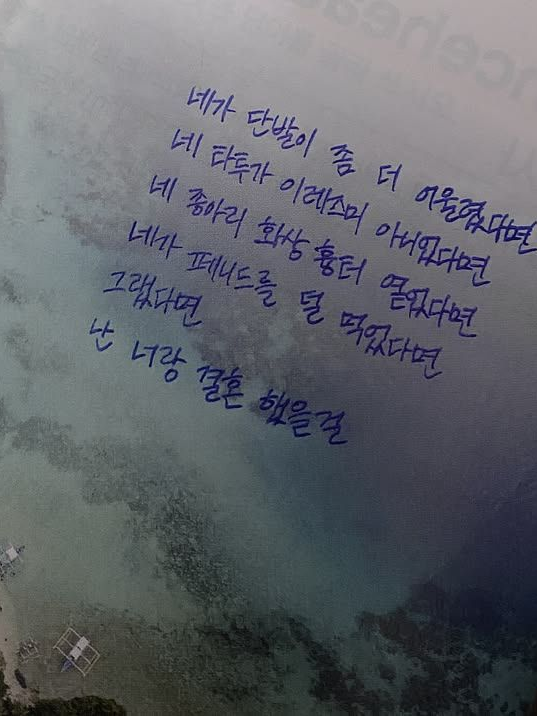 네가 단발이 좀 더 어울렸다면
네 타투가 이레즈미 아니었다면
네 종아리 화상 흉터 옅었다면
네가 페니드를 덜 먹었다면
그랬다면
난 너랑 결혼 했을걸